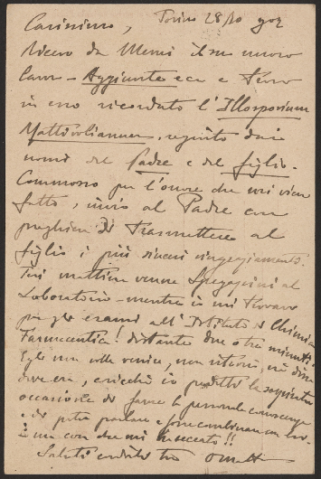 Carissimo, Torino 28/10 902
Ricevo da Memi il suo nuovo
lavoro - Aggiunte ecc e trovo
in esso ricordato l'Illosporium
Mattiroliaunum, seguito dai
nomi del Padre e del figlio -
Commosso per l'onore che mi vien
fatto, invio al Padre con
preghiera di trasmettere al
figlio i più sinceri ringraziamenti.
Ieri mattina venne Spegazzini al
Laboratorio - mentre io mi trovavo
per gli esami all'Istituto di Chimica
Farmaceutica! distante due o tre minuti!
Egli non volle venire, non ritornò, nè
, cosicchè io perdetti la
occasione di farne la personale conoscenza
e di poter parlare e forse combinare
con che mi !!
Saluti cordiali tuo